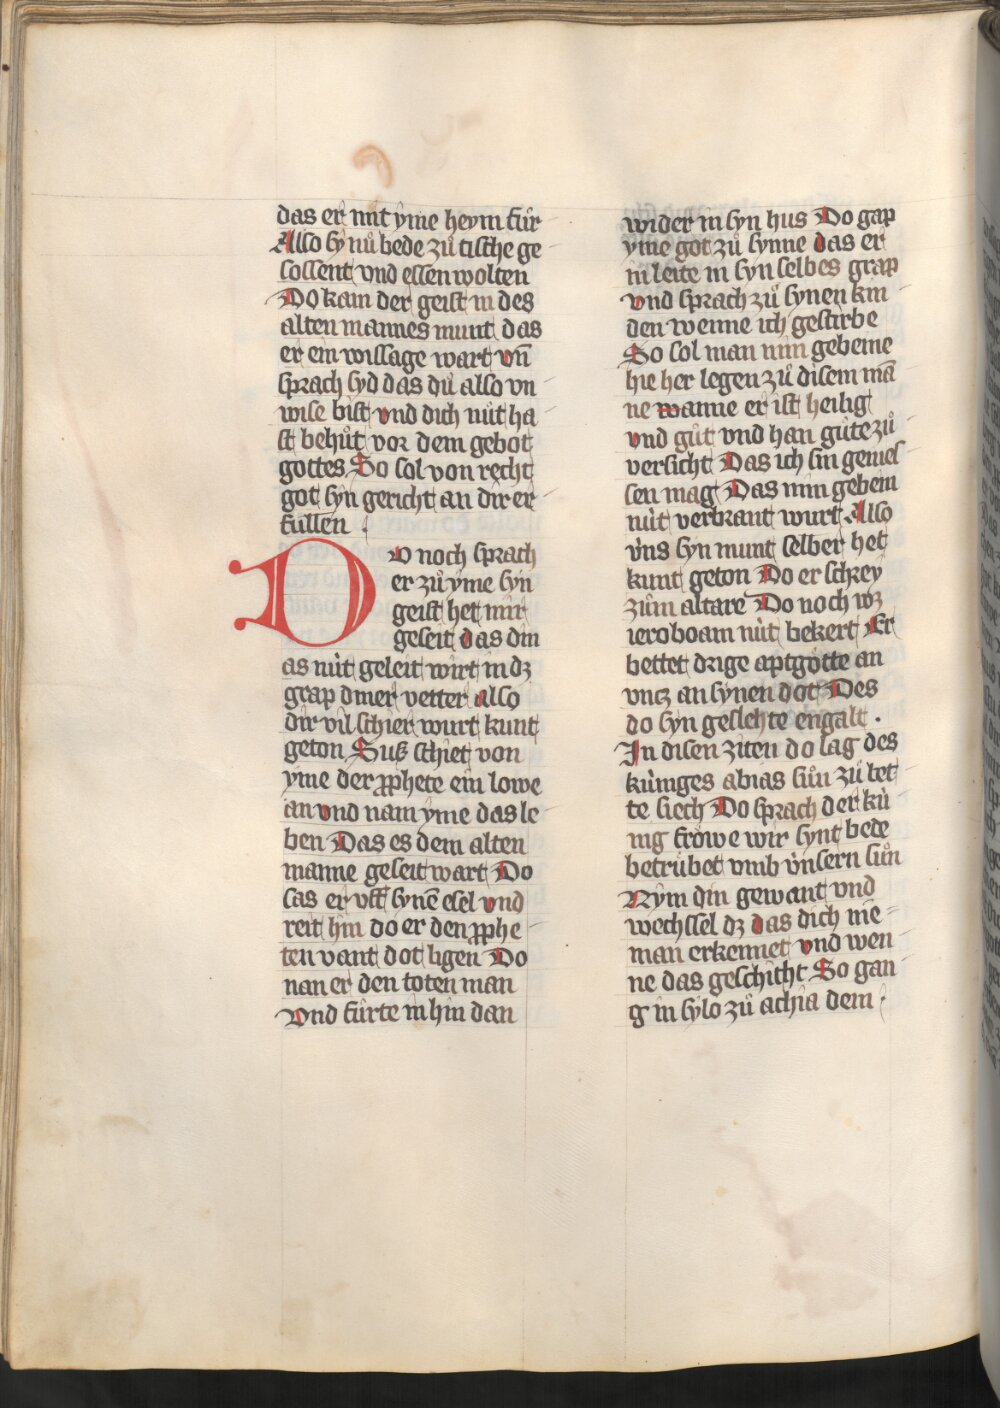 das er mit ẏme heym fuͤr
Also sẏ nuͦ bede zuͦ tische ge
sossent vnd essen wolten
Do kam der geist in des
alten mannes munt das
er ein wissage wart vn̄
sprach syd das duͦ also vn
wise bist vnd dich nuͤt ha
st behuͦt vor dem gebot
gottes So sol von recht
got sẏn gericht an dir er
fullen
Do noch sprach
er zuͦ ẏme sẏn
geist het mir
geseit das din
as nuͤt geleit wirt in dz
grap diner vetter also
dir vil schier wurt kunt
geton Sus schiet von
ẏme der ꝓphete ein lowe
an vnd nam ẏme das le
ben Das es dem alten
manne geseit wart Do
sas er vff sẏnē esel vnd
reit hin do er den ꝓphe
ten vant dot ligen Do
nan er den toten man
vnd fuͤrte in hin dan
wider in sẏn hus Do gap
ẏme got zuͦ sẏnne das er
in leite in sẏn selbes grap
vnd sprach zuͦ sẏnen kin
den wenne ich gestirbe
So sol man min gebeine
hie her legen zuͦ disem mā
ne wanne er ist heilig
vnd guͦt vnd han guͤte zuͦ
versicht Das ich sin genies
sen mag Das min gebein
nuͤt verbrant wurt Also
vͤns sẏn munt selber het
kunt geton Do er schrey
zuͦm altare Do noch wz
ieroboam nuͤt bekert Er
bettet drige aptgoͤtte an
vntz an sẏnen dot Des
do sẏn geslehte engalt .
In disen ziten do lag des
kuͤniges abias suͦn zuͦ bet
te siech Do sprach der kuͤ
nig frowe wir sẏnt bede
betruͤbet vmb vͤnsern suͦn
Nẏm din gewant vnd
wechssel dz das dich nie
man erkennet vnd wen
ne das geschicht So gan
g in sẏlo zuͦ achia dem